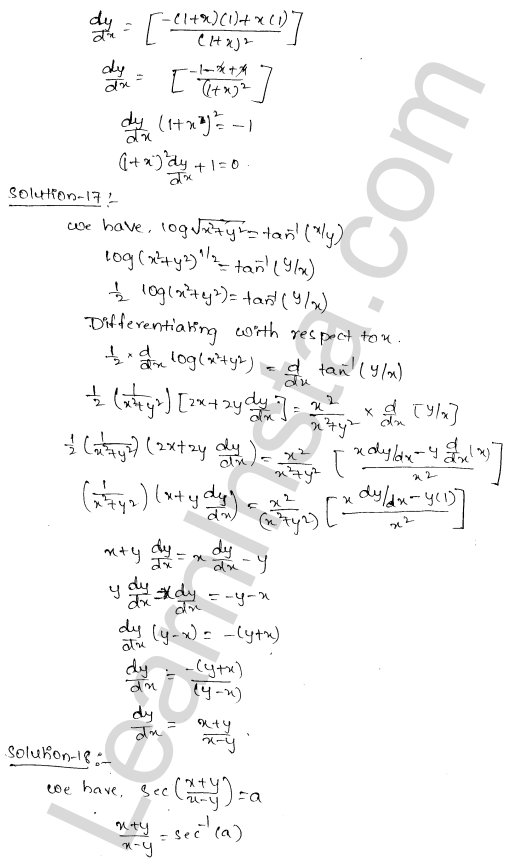 dy/dx = [-(1+x)(1)+x(1)/(1+x)2]
dy/dx = [-1-x+x/(1+x)2]
dy/dx (1+x)2 = -1
(1+x)2 dy/dx + 1 = 0.
Solution-17:-
We have, log√x2+y2 = tan-1(x/y)
log(x2+y2)1/2 = tan-1(y/x)
1/2 log(x2+y2) = tan-1(y/x)
Differentiating with respect to x.
1/2 × d/dx log(x2+y2) = d/dx tan-1(y/x)
1/2 (1/x2+y2) [2x+2y dy/dx] = x2/x2+y2 × d/dx [y/x]
1/2 (1/x2+y2) (2x+2y dy/dx) = x2/x2+y2 [x dy/dx - y d/dx(x)/x2]
(1/x2+y2) (x+y dy/dx) = x2/(x2+y2) [x dy/dx - y(1)/x2]
x+y dy/dx = x dy/dx - y
y dy/dx - x dy/dx = -y-x
dy/dx (y-x) = -(y+x)
dy/dx = -(y+x)/(y-x)
dy/dx = x+y/x-y.
Solution-18:-
We have, sec(x+y/x-y) = a
x+y/x-y = sec-1(a)
Learninsta.com